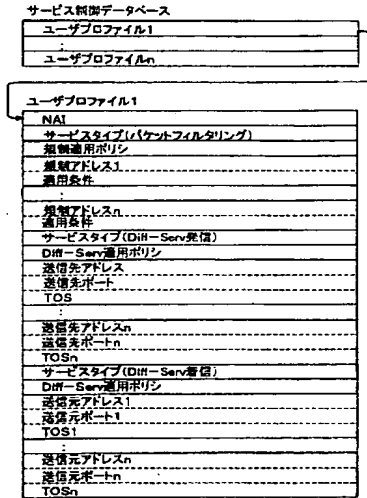 サービス制御データベース
ユーザプロファイル1
:
ユーザプロファイルn
ユーザプロファイル1
NAI
サービスタイプ(パケットフィルタリング)
規制適用ポリシ
規制アドレス1
適用条件
:
規制アドレスn
適用条件
サービスタイプ(Diff-Serv発信)
Diff-Serv適用ポリシ
送信先アドレス
送信先ポート
TOS
:
送信先アドレスn
送信先ポートn
TOSn
サービスタイプ(Diff-Serv着信)
Diff-Serv適用ポリシ
送信元アドレス1
送信元ポート1
TOS1
:
送信元アドレスn
送信元ポートn
TOSn